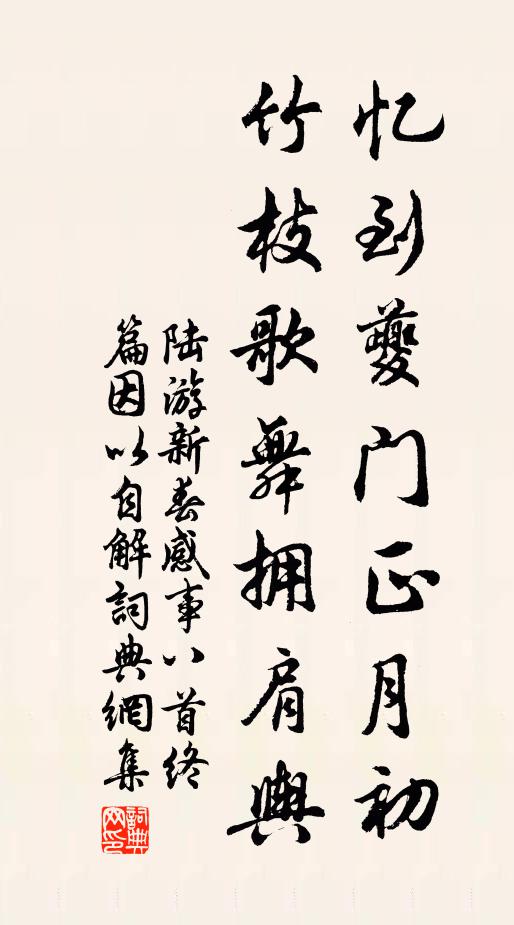 忆到夔门正月初
竹枝歌舞拥肩舆
陆游新春感事八首终
篇因以自解詞典網集
詞典
网印